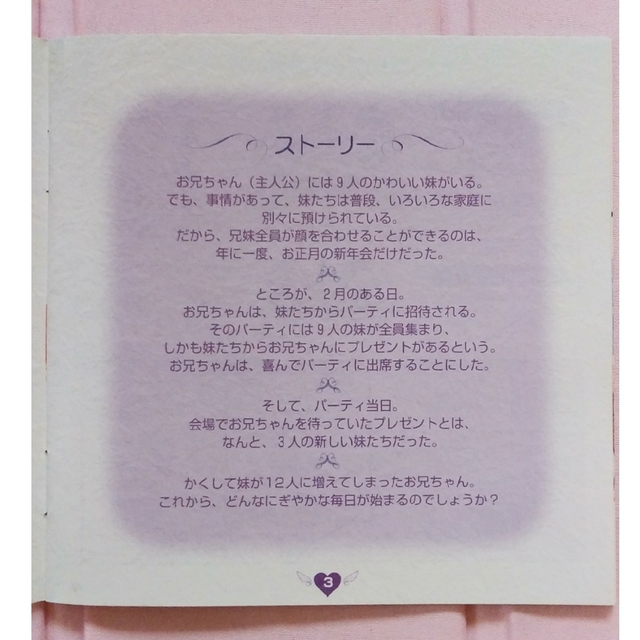 ストーリー
お兄ちゃん（主人公）には9人のかわいい妹がいる。
でも、事情があって、妹たちは普段、いろいろな家庭に
別々に預けられている。
だから、兄妹全員が顔を合わせることができるのは、
年に一度、お正月の新年会だけだった。
ところが、2月のある日。
お兄ちゃんは、妹たちからパーティに招待される。
そのパーティには9人の妹が全員集まり、
しかも妹たちからお兄ちゃんにプレゼントがあるという。
お兄ちゃんは、喜んでパーティに出席することにした。
そして、パーティ当日。
会場でお兄ちゃんを待っていたプレゼントとは、
なんと、3人の新しい妹たちだった。
かくして妹が12人に増えてしまったお兄ちゃん。
これから、どんなにぎやかな毎日が始まるのでしょうか？
3